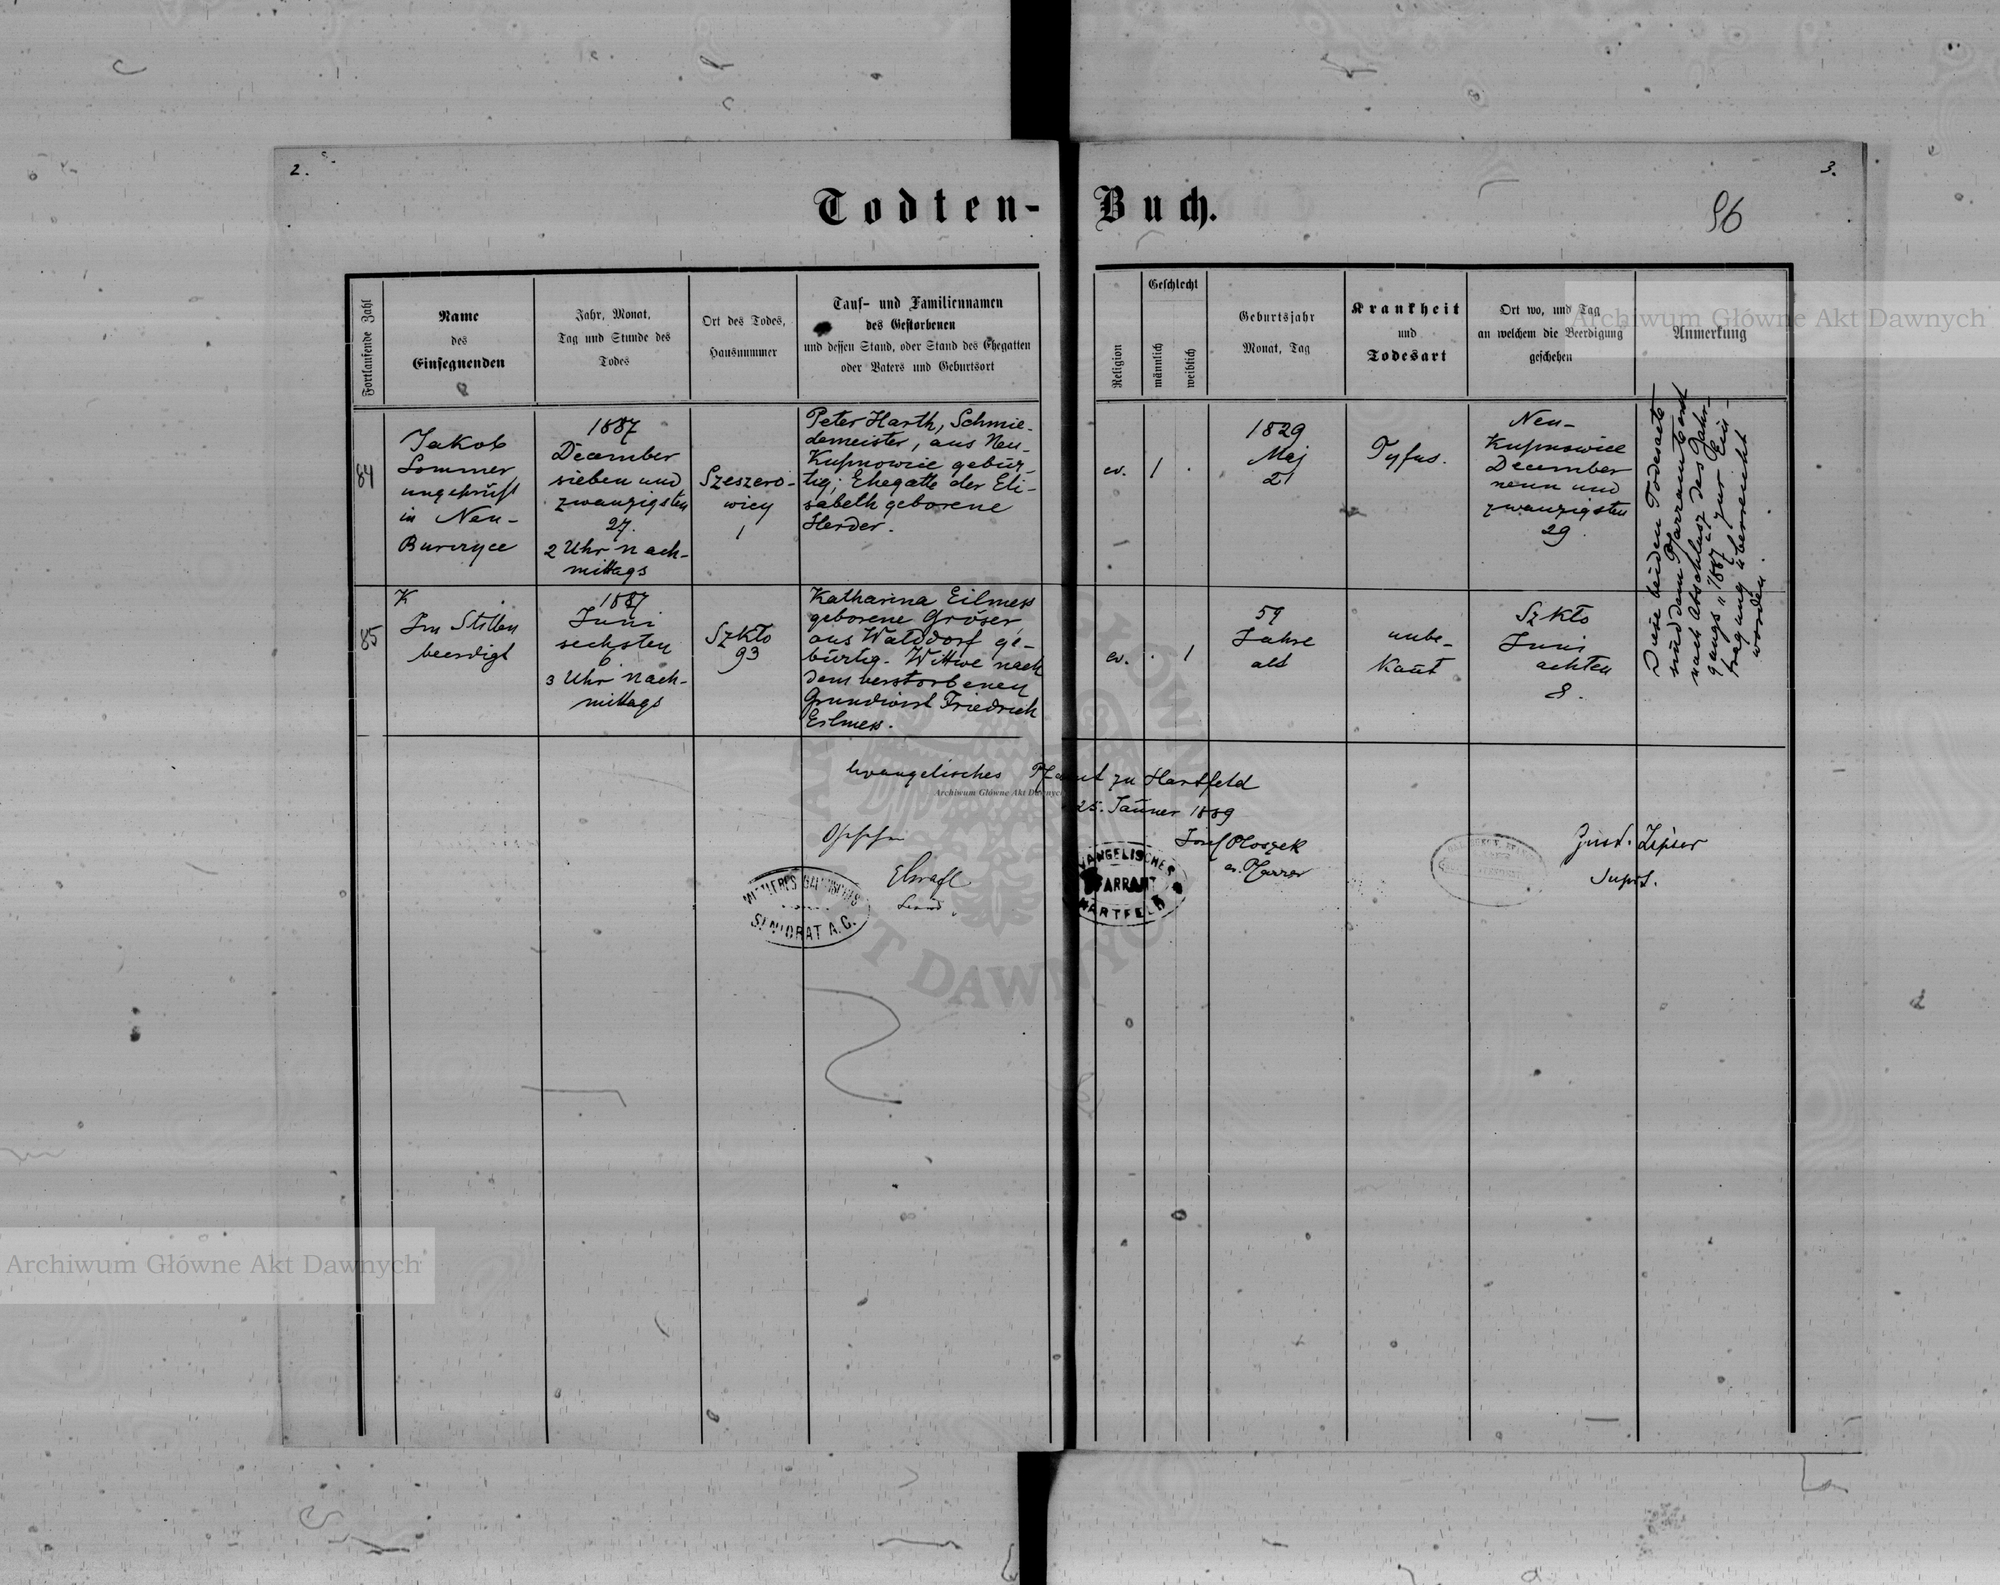 2.
3.
Todten-Buch.
96
Fortlaufende Zahl
Name
des
Einsegnenden
Jahr, Monat,
Tag und Stunde des
Todes
Ort des Todes,
Hausnummer
Tauf- und Familiennamen
des Gestorbenen
und dessen Stand, oder Stand des Ehegatten
oder Vaters und Geburtsort
Religion
Geschlecht
männlich
weiblich
Geburtsjahr
Monat, Tag
Krankheit
und
Todesart
Ort wo, und Tag
an welchem die Beerdigung
geschehen
Anmerkung
84
Jakob
Sommer
ungeprüft
in Neu-
Burczyce
1887
December
sieben und
zwanzigsten
27.
2 Uhr nach-
mittags
Szeszero-
wicy
1
Peter Harth, Schmie-
demeister, aus Neu-
Kupnowice gebür-
tig; Ehegatte der Eli-
sabeth geborene
Herder.
ev.
1
.
1829
Mej
21
Tyfus.
Neu-
Kupnowice
December
neun und
zwanzigsten
29.
85
K
Im Stillen
beerdigt
1887
Juni
sechsten
6
3 Uhr nach-
mittags
Szkło
93
Katharina Eilmess
geborene Gröser
aus Walddorf ge-
bürtig. Wittwe nach
dem verstorbenen
Grundwirt Friedrich
Eilmess.
ev.
.
1
59
Jahre
alt
unbe-
kant
Szkło
Juni
achten
8.
Diese beiden Todesacte
sind dem Pfarramte erst
nach Abschluss des Jahr-
gangs "1887" zur Ein-
tragung überreicht
worden.
Evangelisches Pfarramt zu Hartfeld
25. Jänner 1889
Josef Ploszek
ev. Pfarrer
MITTLERES GALIZISCHES
SENIORAT A.C.
EVANGELISCHES
PFARRAMT
HARTFELD
Supdt.
Archiwum Główne Akt Dawnych
Archiwum Główne Akt Dawnych
Archiwum Główne Akt Dawnych